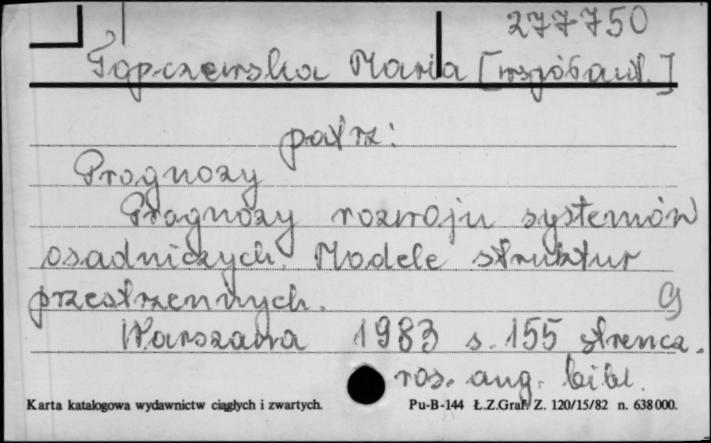 277750
Topczewska Maria [współaut.]
patrz:
Prognozy
Prognozy rozwoju systemów
osadniczych. Modele struktur
przestrzennych. g
Warszawa 1983 s. 155 streszcz.
ros. ang. bibl.
Karta katalogowa wydawnictw ciągłych i zwartych. Pu-B-144 Ł.Z.Graf. Z. 120/15/82 n. 638000.